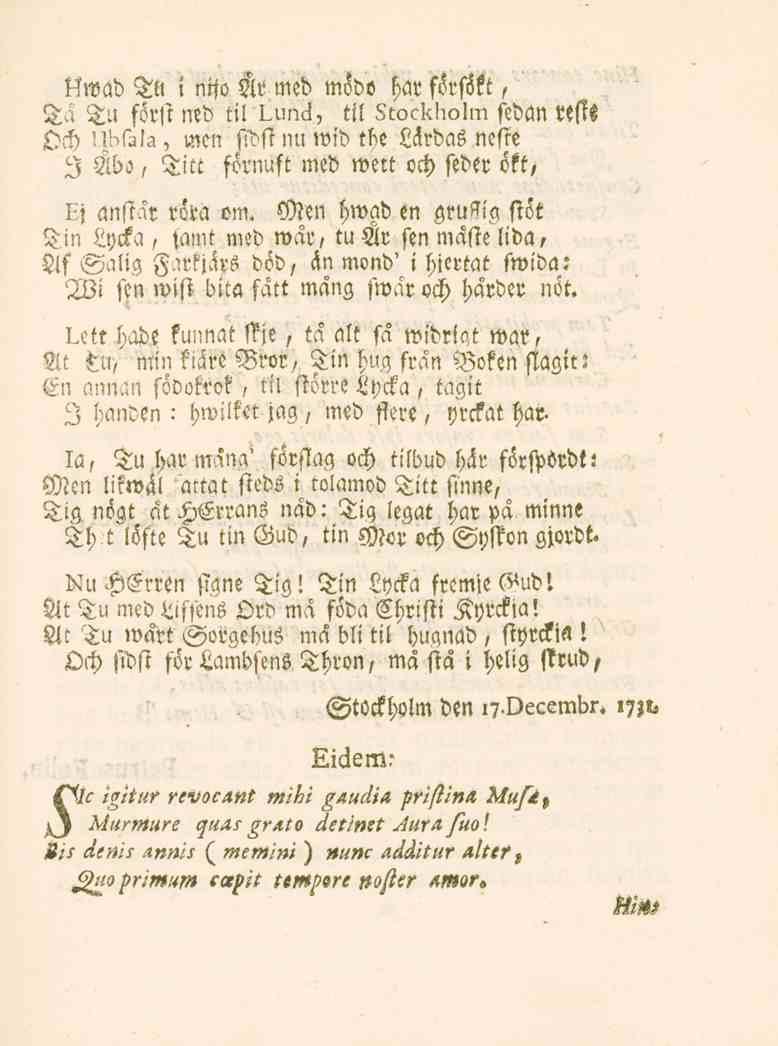 Hwad Tu i nijo År med mödo har försökt,
Tå Tu först ned til Lund, til Stockholm sedan reste
Och Ubsala, men sidst nu wid the Lärdas neste
I Åbo, Titt förnuft med wett och seder ökt,
Ej anstår röra om. Men hwad en gruflig stöt
Tin Lycka, jamt med wår, tu År sen måste lida,
Af Salig Farkjärs död, än mond' i hjertat swida:
Wi sen wist bita fått mång swår och hårder nöt.
Lett hade kunnat skje, tå alt så widrigt war,
At Tu, min kiäre Bror, Tin hug från Boken slagit:
En annan födokrok, til större Lycka, tagit
I handen: hwilket jag, med flere, yrckat har.
Ia, Tu har måna' förslag och tilbud här förspordt:
Men likwäl attat steds i tolamod Titt sinne,
Tig nögt åt HErrans nåd: Tig legat har på minne
Th t löfte Tu tin Gud, tin Mor och Syskon gjordt.
Nu HErren signe Tig! Tin Lycka fremje Gud!
At Tu med Lifsens Ord må föda Christi Kyrckja!
At Tu wårt Sorgehus må bli til hugnad, styrckja!
Och sidst för Lambsens Thron, må stå i helig skrud,
Stockholm den 17. Decembr. 1731.
Eidem:
SIc igitur revocant mihi gaudia pristina Musæ,
Murmure quas grato detinet Aura suo!
Bis denis annis (memini) nunc additur alter,
Quo primum cœpit tempore noster amor.
Hinc